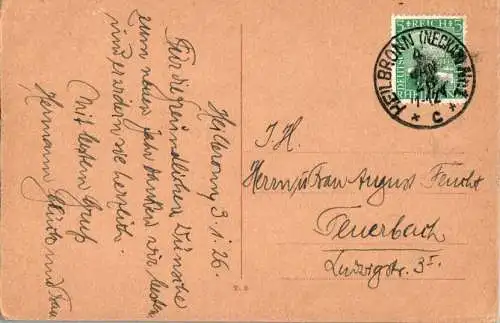 Heilbronn, 3. 1. 26.
Für die freundlichen Wünsche
zum neuen Jahr danken wir bestens
und erwidern sie herzlich.
Mit bestem Gruß
Hermann und Frau
5 REICH 5
DEUTSCHES
HEILBRONN (NECKAR)
* c *
I. H.
Herrn u Frau August Feucht
Feuerbach
Ludwigstr. 3 I.